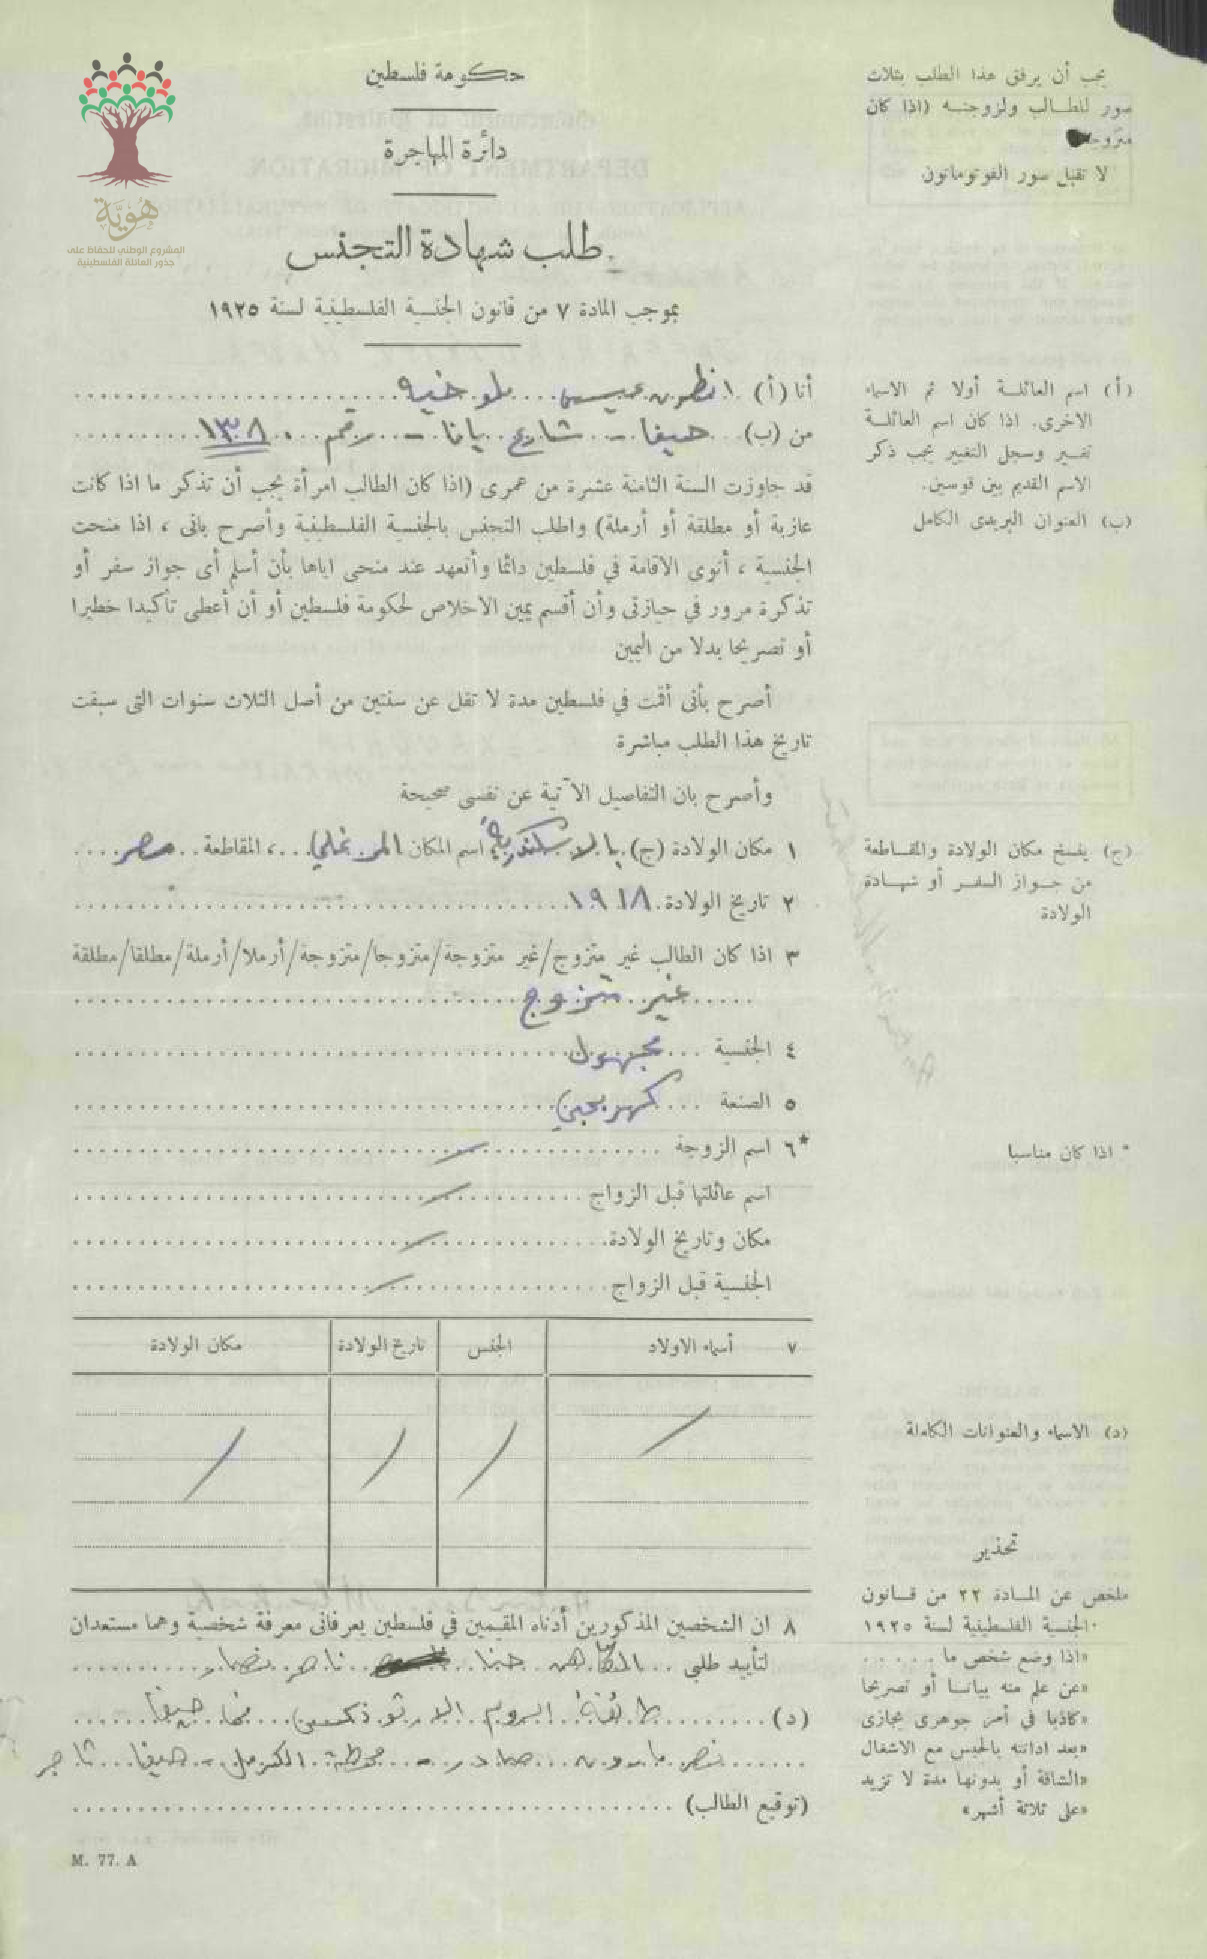 هُويَّة
المشروع الوطني للحفاظ على
جذور العائلة الفلسطينية
حكومة فلسطين
دائرة المهاجرة
طلب شهادة التجنس
بموجب المادة ٧ من قانون الجنسية الفلسطينية لسنة ١٩٢٥
يجب أن يرفق هذا الطلب بثلاث
صور للطالب ولزوجته (اذا كان
متزوجا)
لا تقبل صور الفوتوماتون
أنا (أ) انطون عيسى
من (ب) حيفا - شارع يافا - رقم ١٣٠٨
قد جاوزت السنة الثامنة عشرة من عمرى (اذا كان الطالب امرأة يجب أن تذكر ما اذا كانت
عازبة أو مطلقة أو أرملة) واطلب التجنس بالجنسية الفلسطينية وأصرح بانى ، اذا منحت
الجنسية ، أنوى الاقامة في فلسطين دائما وأتعهد عند منحى اياها بأن أسلم أى جواز سفر أو
تذكرة مرور في حيازتى وأن أقسم يمين الاخلاص لحكومة فلسطين أو أن أعطى تأكيدا خطيرا
أو تصريحا بدلا من اليمين
أصرح بأنى أقمت في فلسطين مدة لا تقل عن سنتين من أصل الثلاث سنوات التى سبقت
تاريخ هذا الطلب مباشرة
وأصرح بان التفاصيل الآتية عن نفسى صحيحة
١ مكان الولادة (ج) بالاسكندرية، اسم المكان ، المقاطعة مصر
٢ تاريخ الولادة ١٩١٨
٣ اذا كان الطالب غير متزوج/غير متزوجة/متزوجا/متزوجة/أرملا/أرملة/مطلقا/مطلقة
غير متزوج
٤ الجنسية مجهول
٥ الصنعة كهربجي
*٦ اسم الزوجة
اسم عائلتها قبل الزواج
مكان وتاريخ الولادة
الجنسية قبل الزواج
٧ أسماء الاولاد الجنس تاريخ الولادة مكان الولادة
٨ ان الشخصين المذكورين أدناه المقيمين في فلسطين يعرفانى معرفة شخصية وهما مستعدان
لتأييد طلبي الكاهن حنا ناصر نصار
(د) طائفة الروم الارثوذكس حيفا
نصر صادر - محطة الكرمل - حيفا تاجر
(توقيع الطالب)
M. 77. A
(أ) اسم العائلة أولا ثم الاسماء
الاخرى. اذا كان اسم العائلة
تغير وسجل التغيير يجب ذكر
الاسم القديم بين قوسين.
(ب) العنوان البريدى الكامل
(ج) ينسخ مكان الولادة والمقاطعة
من جواز السفر أو شهادة
الولادة
* اذا كان مناسبا
(د) الاسماء والعنوانات الكاملة
تحذير
ملخص عن المادة ٢٢ من قانون
الجنسية الفلسطينية لسنة ١٩٢٥
«اذا وضع شخص ما . . . . .
«عن علم منه بيانا أو تصريحا
«كاذبا فى أمر جوهرى يجازى
«بعد ادانته بالحبس مع الاشغال
«الشاقة أو بدونها مدة لا تزيد
«على ثلاثة أشهر»